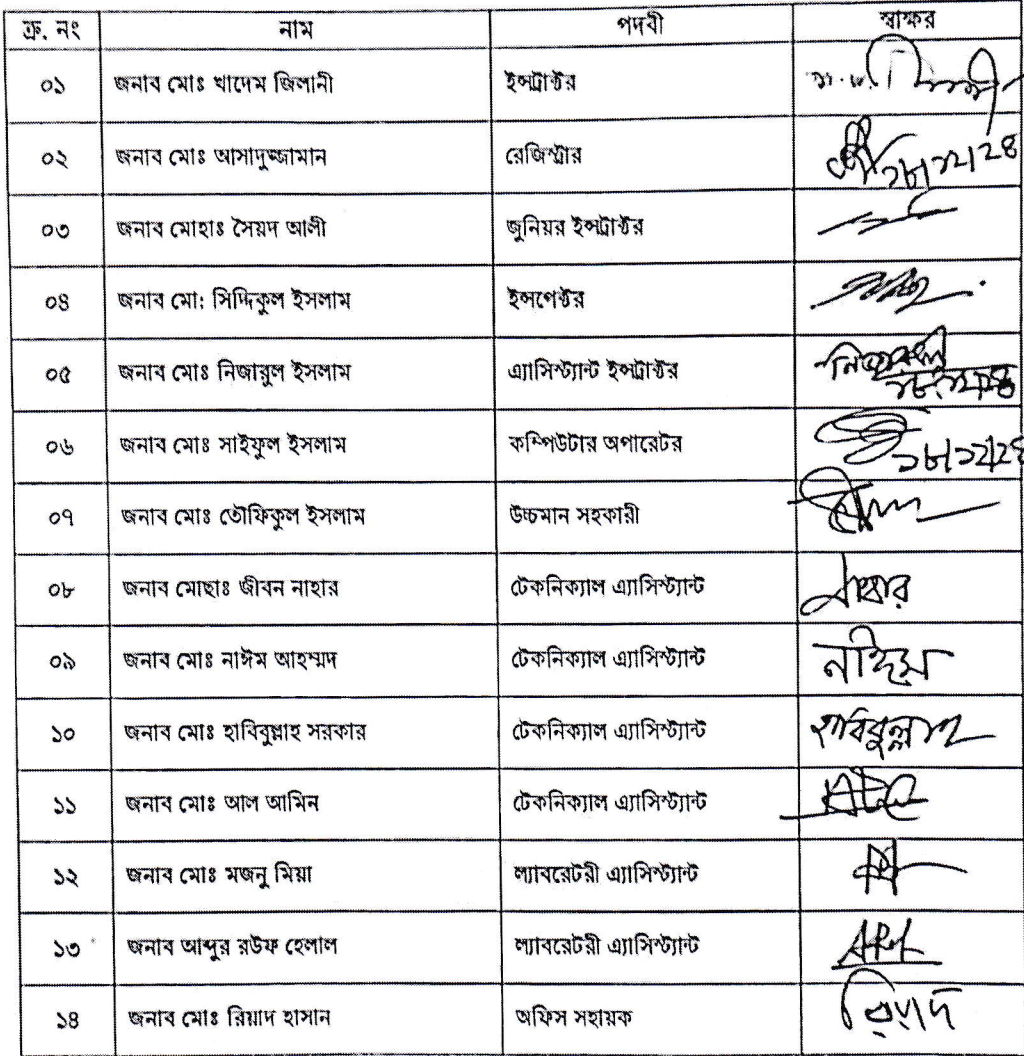 ক্র. নং নাম পদবী স্বাক্ষর
০১ জনাব মোঃ খাদেম জিলানী ইন্সট্রাক্টর
০২ জনাব মোঃ আসাদুজ্জামান রেজিস্ট্রার ১৮/১২/২৪
০৩ জনাব মোহাঃ সৈয়দ আলী জুনিয়র ইন্সট্রাক্টর
০৪ জনাব মো: সিদ্দিকুল ইসলাম ইন্সপেক্টর
০৫ জনাব মোঃ নিজারুল ইসলাম এ্যাসিস্ট্যান্ট ইন্সট্রাক্টর ১৮.১২.২৪
০৬ জনাব মোঃ সাইফুল ইসলাম কম্পিউটার অপারেটর ১৮/১২/২৪
০৭ জনাব মোঃ তৌফিকুল ইসলাম উচ্চমান সহকারী
০৮ জনাব মোছাঃ জীবন নাহার টেকনিক্যাল এ্যাসিস্ট্যান্ট
০৯ জনাব মোঃ নাঈম আহম্মদ টেকনিক্যাল এ্যাসিস্ট্যান্ট নাঈম
১০ জনাব মোঃ হাবিবুল্লাহ সরকার টেকনিক্যাল এ্যাসিস্ট্যান্ট হাবিবুল্লাহ
১১ জনাব মোঃ আল আমিন টেকনিক্যাল এ্যাসিস্ট্যান্ট
১২ জনাব মোঃ মজনু মিয়া ল্যাবরেটরী এ্যাসিস্ট্যান্ট
১৩ জনাব আব্দুর রউফ হেলাল ল্যাবরেটরী এ্যাসিস্ট্যান্ট
১৪ জনাব মোঃ রিয়াদ হাসান অফিস সহায়ক রিয়াদ